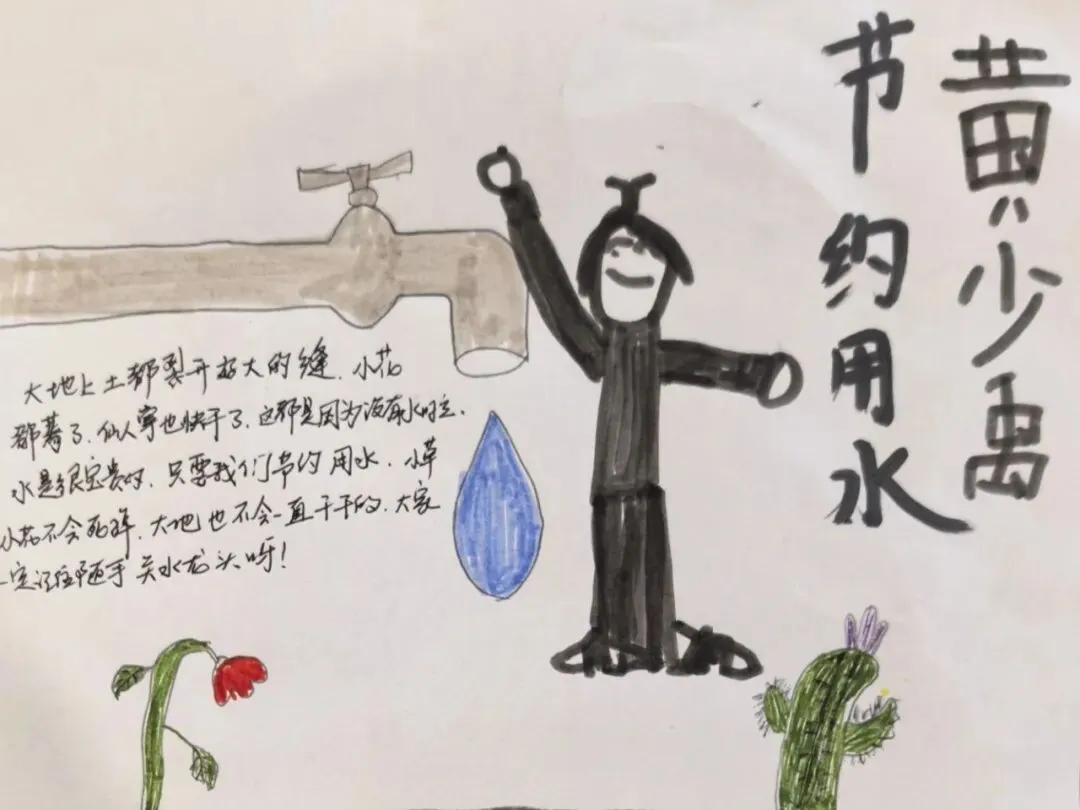 黄少禹
节约用水
大地上土都裂开好大的缝、小花
都蔫了、仙人掌也快干了、这都是因为没有水的。
水是很宝贵的、只要我们节约用水、小草
小花不会死、大地也不会一直干干的、大家
一定记住随手关水龙头呀！